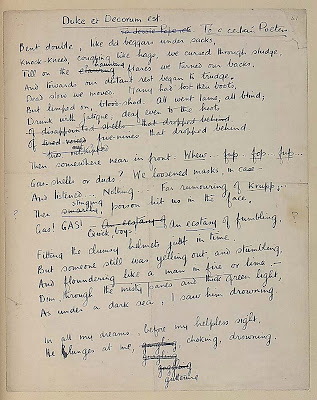 Dulce et Decorum est
To a certain Poetess
Bent double, like old beggars under sacks,
Knock-kneed, coughing like hags, we cursed through sludge,
Till on the haunting flares we turned our backs,
And towards our distant rest began to trudge.
Dead slow we moved. Many had lost their boots,
But limped on, blood-shod. All went lame, all blind;
Drunk with fatigue; deaf even to the hoots
Of disappointed shells that dropped behind
Of five-nines that dropped behind
Then somewhere near in front: Whew... fup, fop, fup...
Gas-shells or duds? We loosened masks in case—
And listened... Nothing... Far rumouring of Krupp...
Then stinging poison hit us in the face.
Gas! GAS! Quick, boys! An ecstasy of fumbling,
Fitting the clumsy helmets just in time.
But someone still was yelling out, and stumbling,
And floundering like a man in fire or lime.—
Dim, through the misty panes and thick green light,
As under a dark sea, I saw him drowning.
In all my dreams, before my helpless sight,
He plunges at me, choking, drowning.